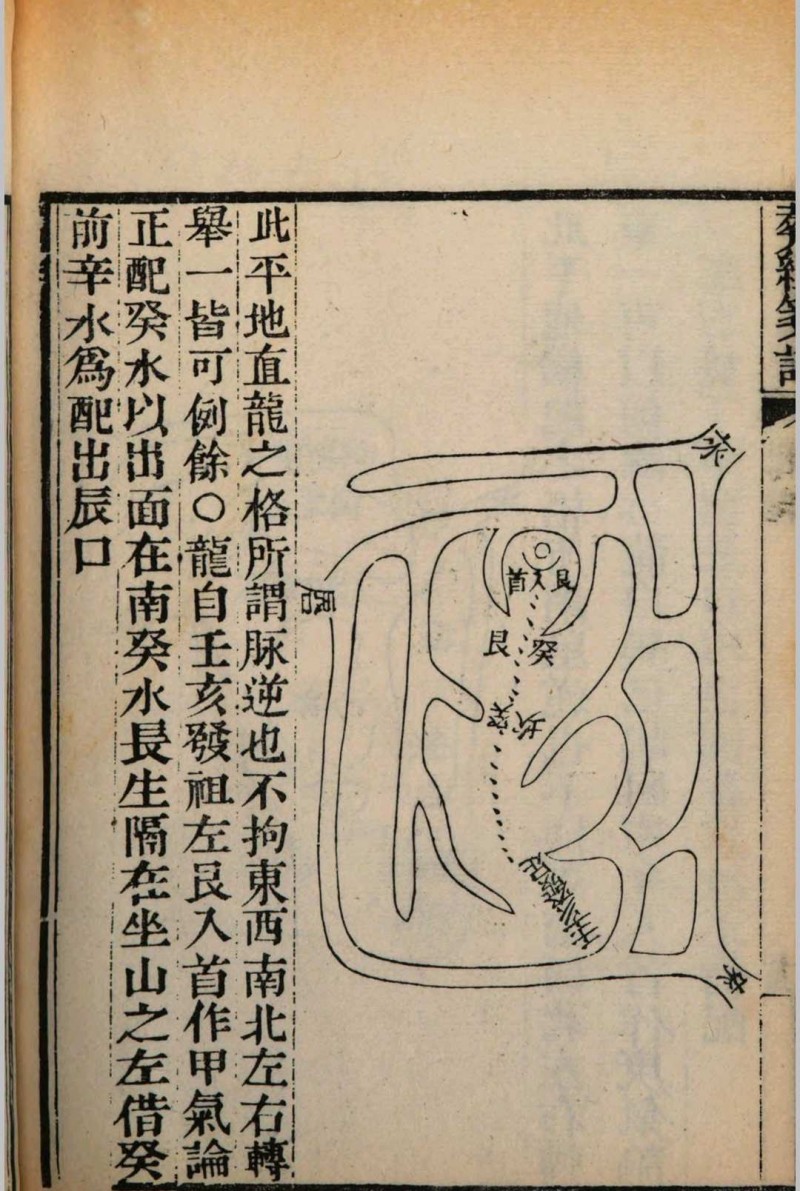 艮入首
艮
癸
坎
癸
辰口
此平地直龍之格所謂脉逆也不拘東西南北左右轉
舉一皆可例餘○龍自壬亥發祖左艮入首作甲氣論
正配癸水以出面在南癸水長生隔在坐山之左借癸
前辛水爲配出辰口